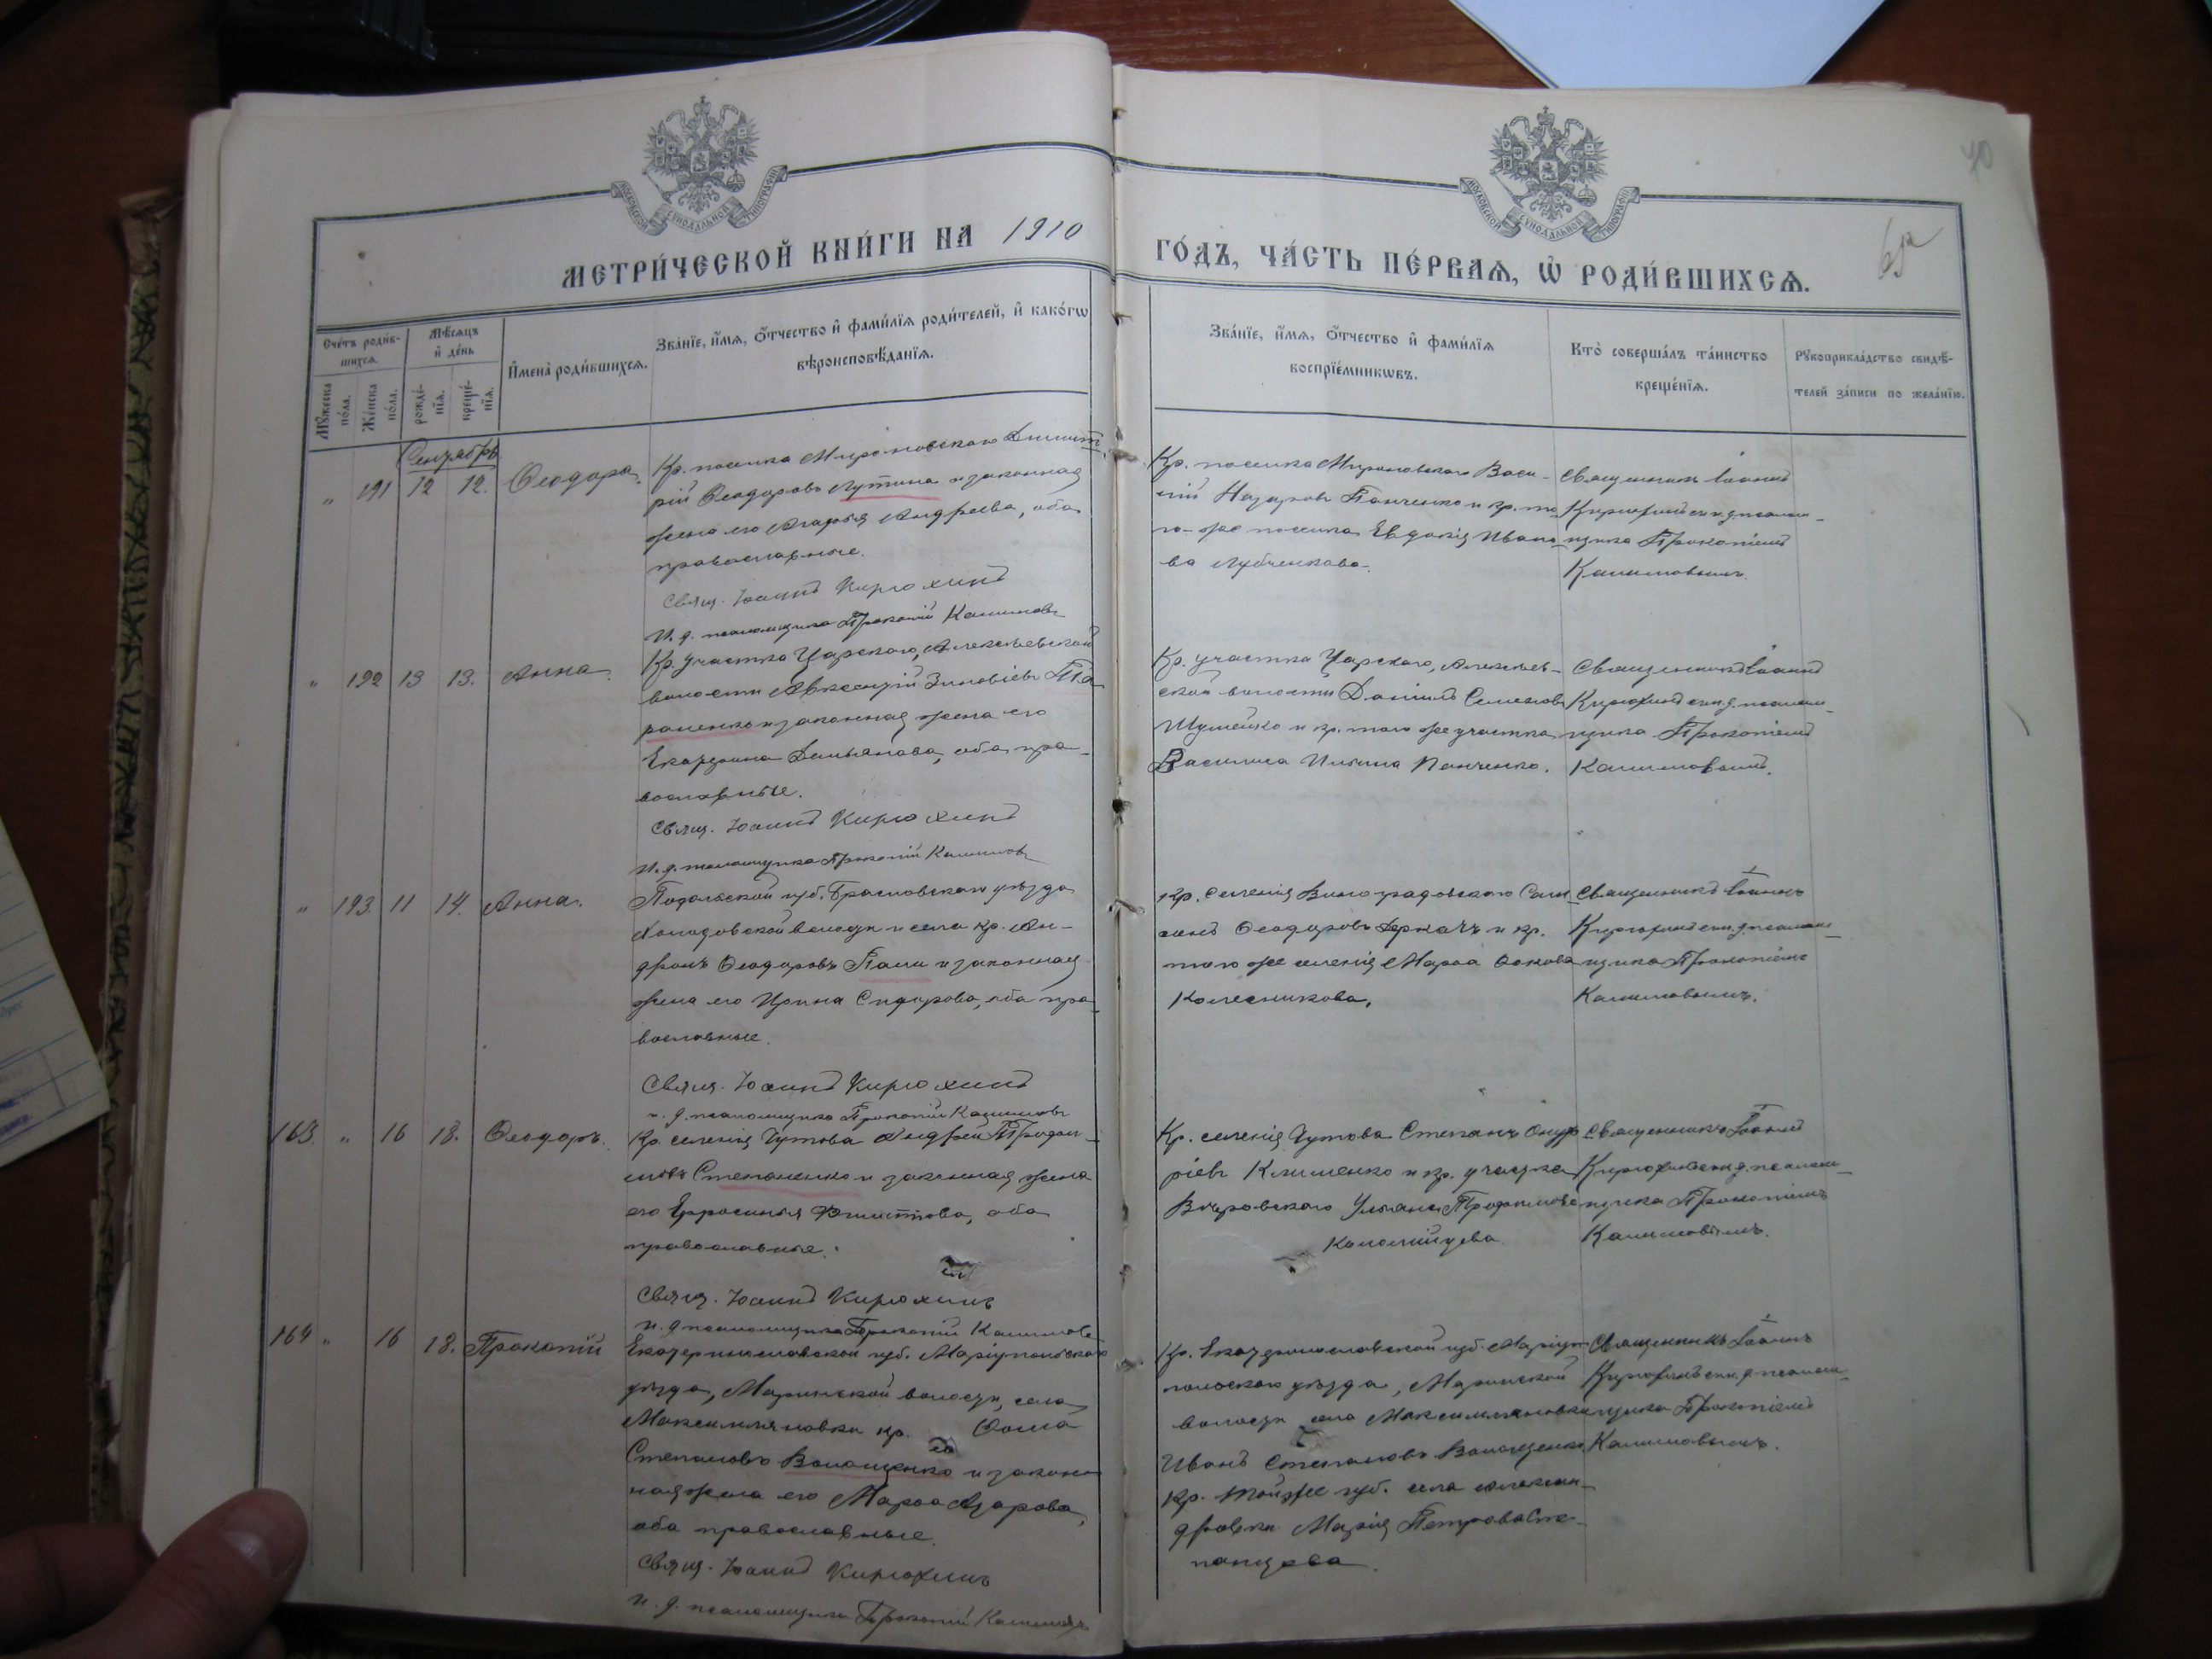 МОСКОВСКОЙ СУНОДАЛЬНОЙ ТИПОГРАФІИ
МОСКОВСКОЙ СУНОДАЛЬНОЙ ТИПОГРАФІИ
40
МЕТРИ́ЧЕСКОЙ КНИ́ГИ НА 1910 ГО́ДЪ, ЧА́СТЬ ПЕ́РВАѦ, Ѡ҆ РОДИ́ВШИХСѦ.
Сче́тъ роди́в-
шихсѧ.
Мꙋ́жеска по́ла.
Же́нска по́ла.
Мѣ́сѧцъ
и҆ де́нь
рожде́-
нїѧ.
креще́-
нїѧ.
И҆мена̀ роди́вшихсѧ.
Зва́нїе, и҆́мѧ, ѻ҆́тчество и҆ фами́лїѧ роди́телей, и҆ како́гѡ
вѣроисповѣ́данїѧ.
Зва́нїе, и҆́мѧ, ѻ҆́тчество и҆ фами́лїѧ
воспрїе́мникѡвъ.
Кто̀ соверша́лъ та́инство
креще́нїѧ.
Рꙋкоприкла́дство свидѣ́-
телей за́писи по жела́нїю.
Сентябрь
" 191 12 12. Ѳеодора.
Кр. поселка Мироновскаго Димит-
рій Ѳеодоровъ Лутина и законная
жена его Агафья Андреева, оба
православные.
Свящ. Іоаннъ Кирюхинъ
И. д. псаломщика Прокопій Калиновъ
Кр. поселка Мироновскаго Васи-
лій Назаровъ Панченко и кр. то-
го-же поселка Евдокія Ивано-
ва Лубченкова.
Священникъ Іоаннъ
Кирюхинъ съ и. д. псалом-
щика Прокопіемъ
Калиновымъ.
" 192 13 13. Анна.
Кр. участка Царскаго, Алексѣевской
волости Авксентій Зиновіевъ Па
раменко и законная жена его
Екатерина Демьянова, оба пра-
вославные.
Свящ. Іоаннъ Кирюхинъ
И. д. псаломщика Прокопій Калиновъ
Кр. участка Царскаго, Алексѣев-
ской волости Даніилъ Семеновъ
Шумейко и кр. того же участка
Василиса Ильина Панченко.
Священникъ Іоаннъ
Кирюхинъ съ и. д. псалом-
щика Прокопіемъ
Калиновымъ.
" 193. 11 14. Анна.
Подольской губ. Брасловскаго уѣзда
волости и села кр. Ан-
дронъ Ѳеодоровъ Пали и законная
жена его Ирина Сидорова, оба пра-
вославные.
Свящ. Іоаннъ Кирюхинъ
и. д. псаломщика Прокопій Калиновъ
Кр. селенія Виноградовскаго Сам-
сонъ Ѳеодоровъ Деркачъ и кр.
того же селенія Марѳа
Колесникова.
Священникъ Іоаннъ
Кирюхинъ съ и. д. псалом-
щика Прокопіемъ
Калиновымъ.
163. " 16 18. Ѳеодоръ.
Кр. селенія Гутова Андрей
Степаненко и законная жена
его Ефросинья Филиппова, оба
православные.
Свящ. Іоаннъ Кирюхинъ
и. д. псаломщика Прокопій Калиновъ
Кр. селенія Гутова Степанъ Онуф
ріевъ Клименко и кр. участка
Вѣровскаго Ульяна Трофимова
Коломійцева.
Священникъ Іоаннъ
Кирюхинъ съ и. д. псалом-
щика Прокопіемъ
Калиновымъ.
164 " 16 18. Прокопій
Екатеринославской губ. Маріупольскаго
уѣзда, Марьинской волости, села
Максимильяновки кр. Ѳома
Степановъ Волощенко и закон-
ная жена его Марѳа Азарова,
оба православные.
Свящ. Іоаннъ Кирюхинъ
и. д. псаломщика Прокопій Калиновъ
Кр. Екатеринославской губ. Маріу-
польскаго уѣзда, Марьинской
волости села Максимильяновки
Иванъ Степановъ Волощенко
кр. той же губ. села Алексан-
дровки Марія Петрова Сте-
панцова.
Священникъ Іоаннъ
Кирюхинъ съ и. д. псалом-
щика Прокопіемъ
Калиновымъ.